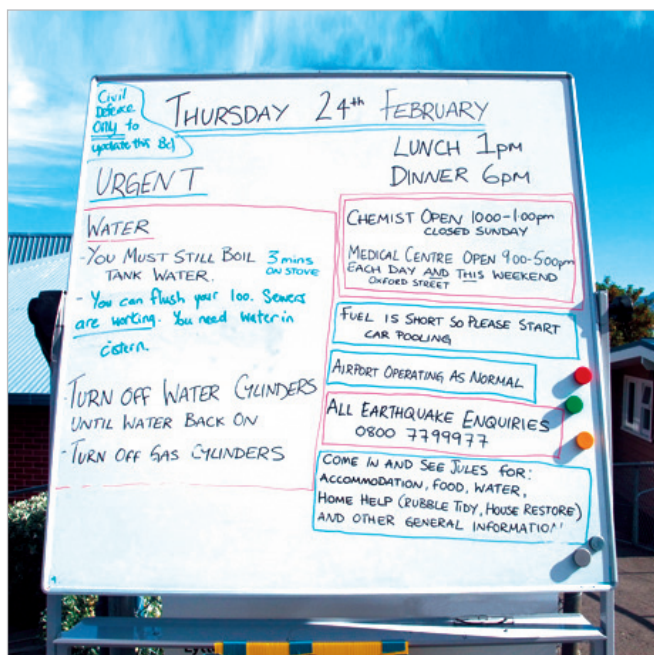 Civil
Defence
ONLY to
update this Bd
THURSDAY 24th FEBRUARY
LUNCH 1pm
DINNER 6pm
URGENT
WATER
- YOU MUST STILL BOIL
TANK WATER.
3 mins
ON STOVE
- You can flush your loo. Sewers
are working. You need water in
cistern.
- TURN OFF WATER CYLINDERS
UNTIL WATER BACK ON
- TURN OFF GAS CYLINDERS
CHEMIST OPEN 10:00-1:00pm
CLOSED SUNDAY
MEDICAL CENTRE OPEN 9:00-5:00pm
EACH DAY AND THIS WEEKEND
OXFORD STREET
FUEL IS SHORT SO PLEASE START
CAR POOLING
AIRPORT OPERATING AS NORMAL
ALL EARTHQUAKE ENQUIRIES
0800 7799977
COME IN AND SEE JULES FOR:
ACCOMMODATION, FOOD, WATER,
HOME HELP (RUBBLE TIDY, HOUSE RESTORE)
AND OTHER GENERAL INFORMATION